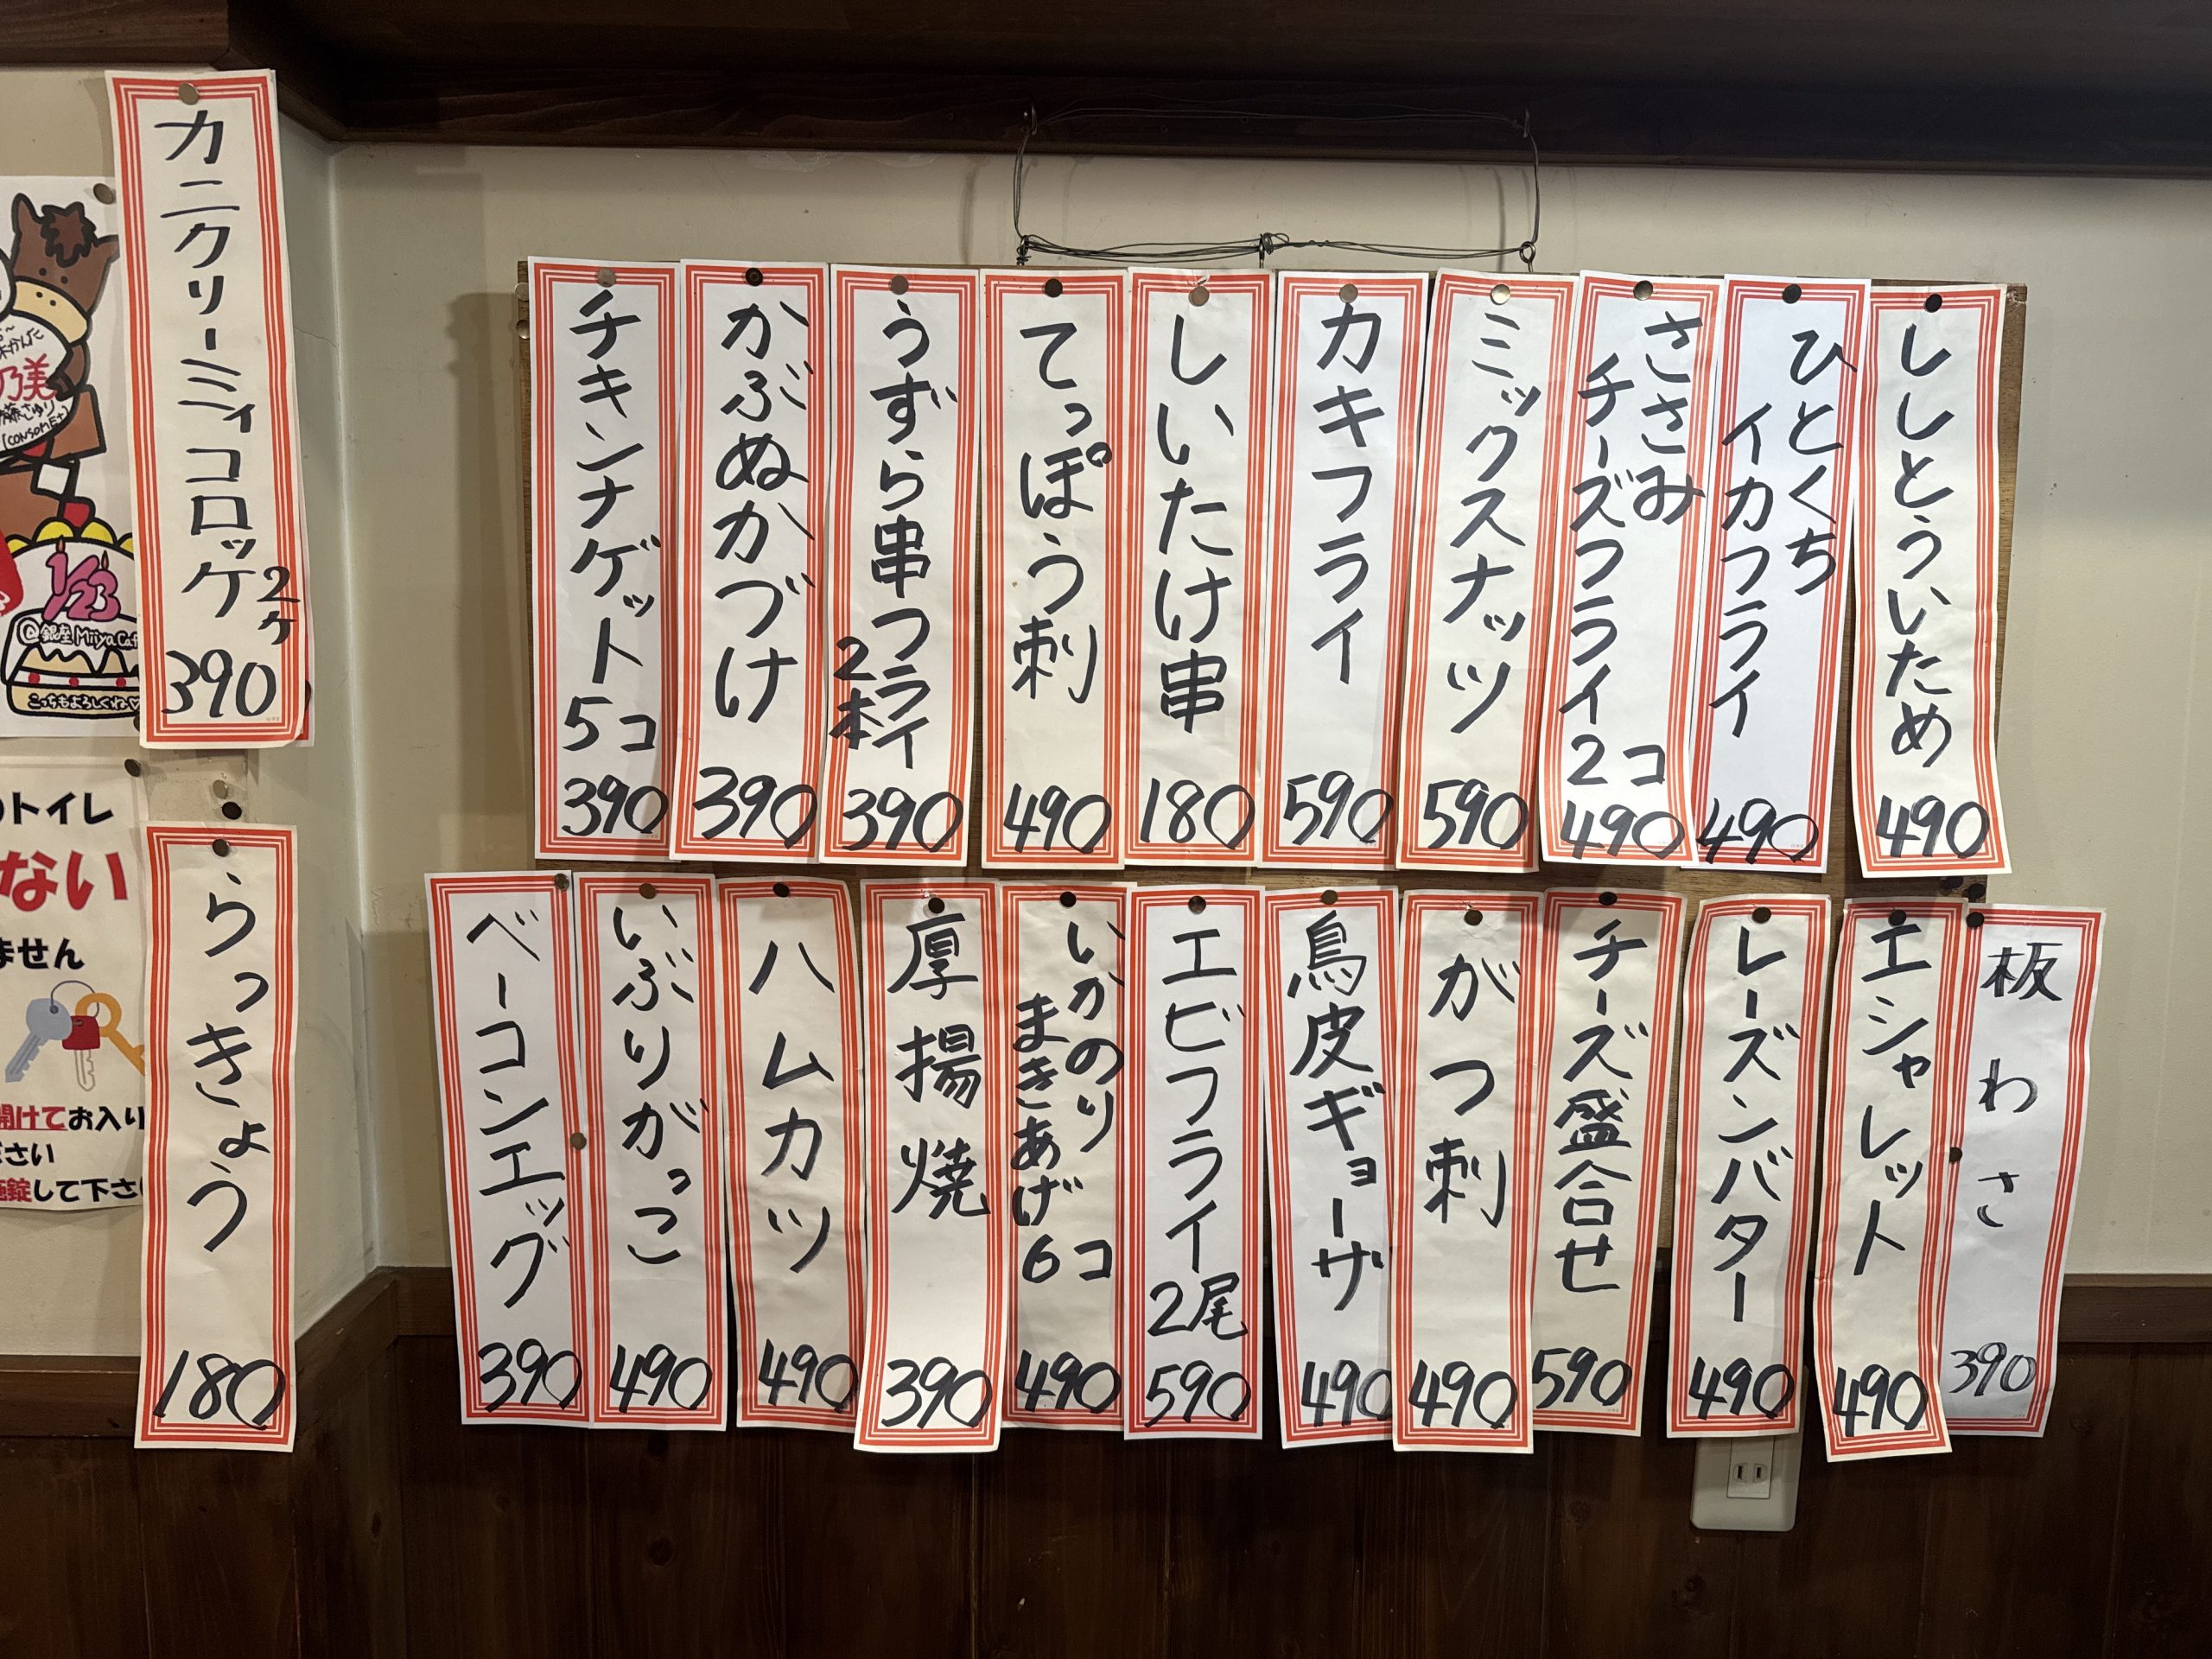 ししとういため
490
ひとくち
イカフライ
490
ささみ
チーズフライ2コ
490
ミックスナッツ
590
カキフライ
590
しいたけ串
180
てっぽう刺
490
うずら串フライ
2本
390
かぶぬかづけ
390
チキンナゲット5コ
390
板わさ
390
エシャレット
490
レーズンバター
490
チーズ盛合せ
590
がつ刺
490
鳥皮ギョーザ
490
エビフライ2尾
590
いかのり
まきあげ6コ
490
厚揚焼
390
ハムカツ
490
いぶりがっこ
490
ベーコンエッグ
390
カニクリーミィコロッケ
2ヶ
390
らっきょう
180
乃美
[CONSOMÉ+]
1/23
@銀座MiiyaCaf
こっちもよろしくね♡
のトイレ
ない
ません
開けてお入り
ださい
施錠して下さ